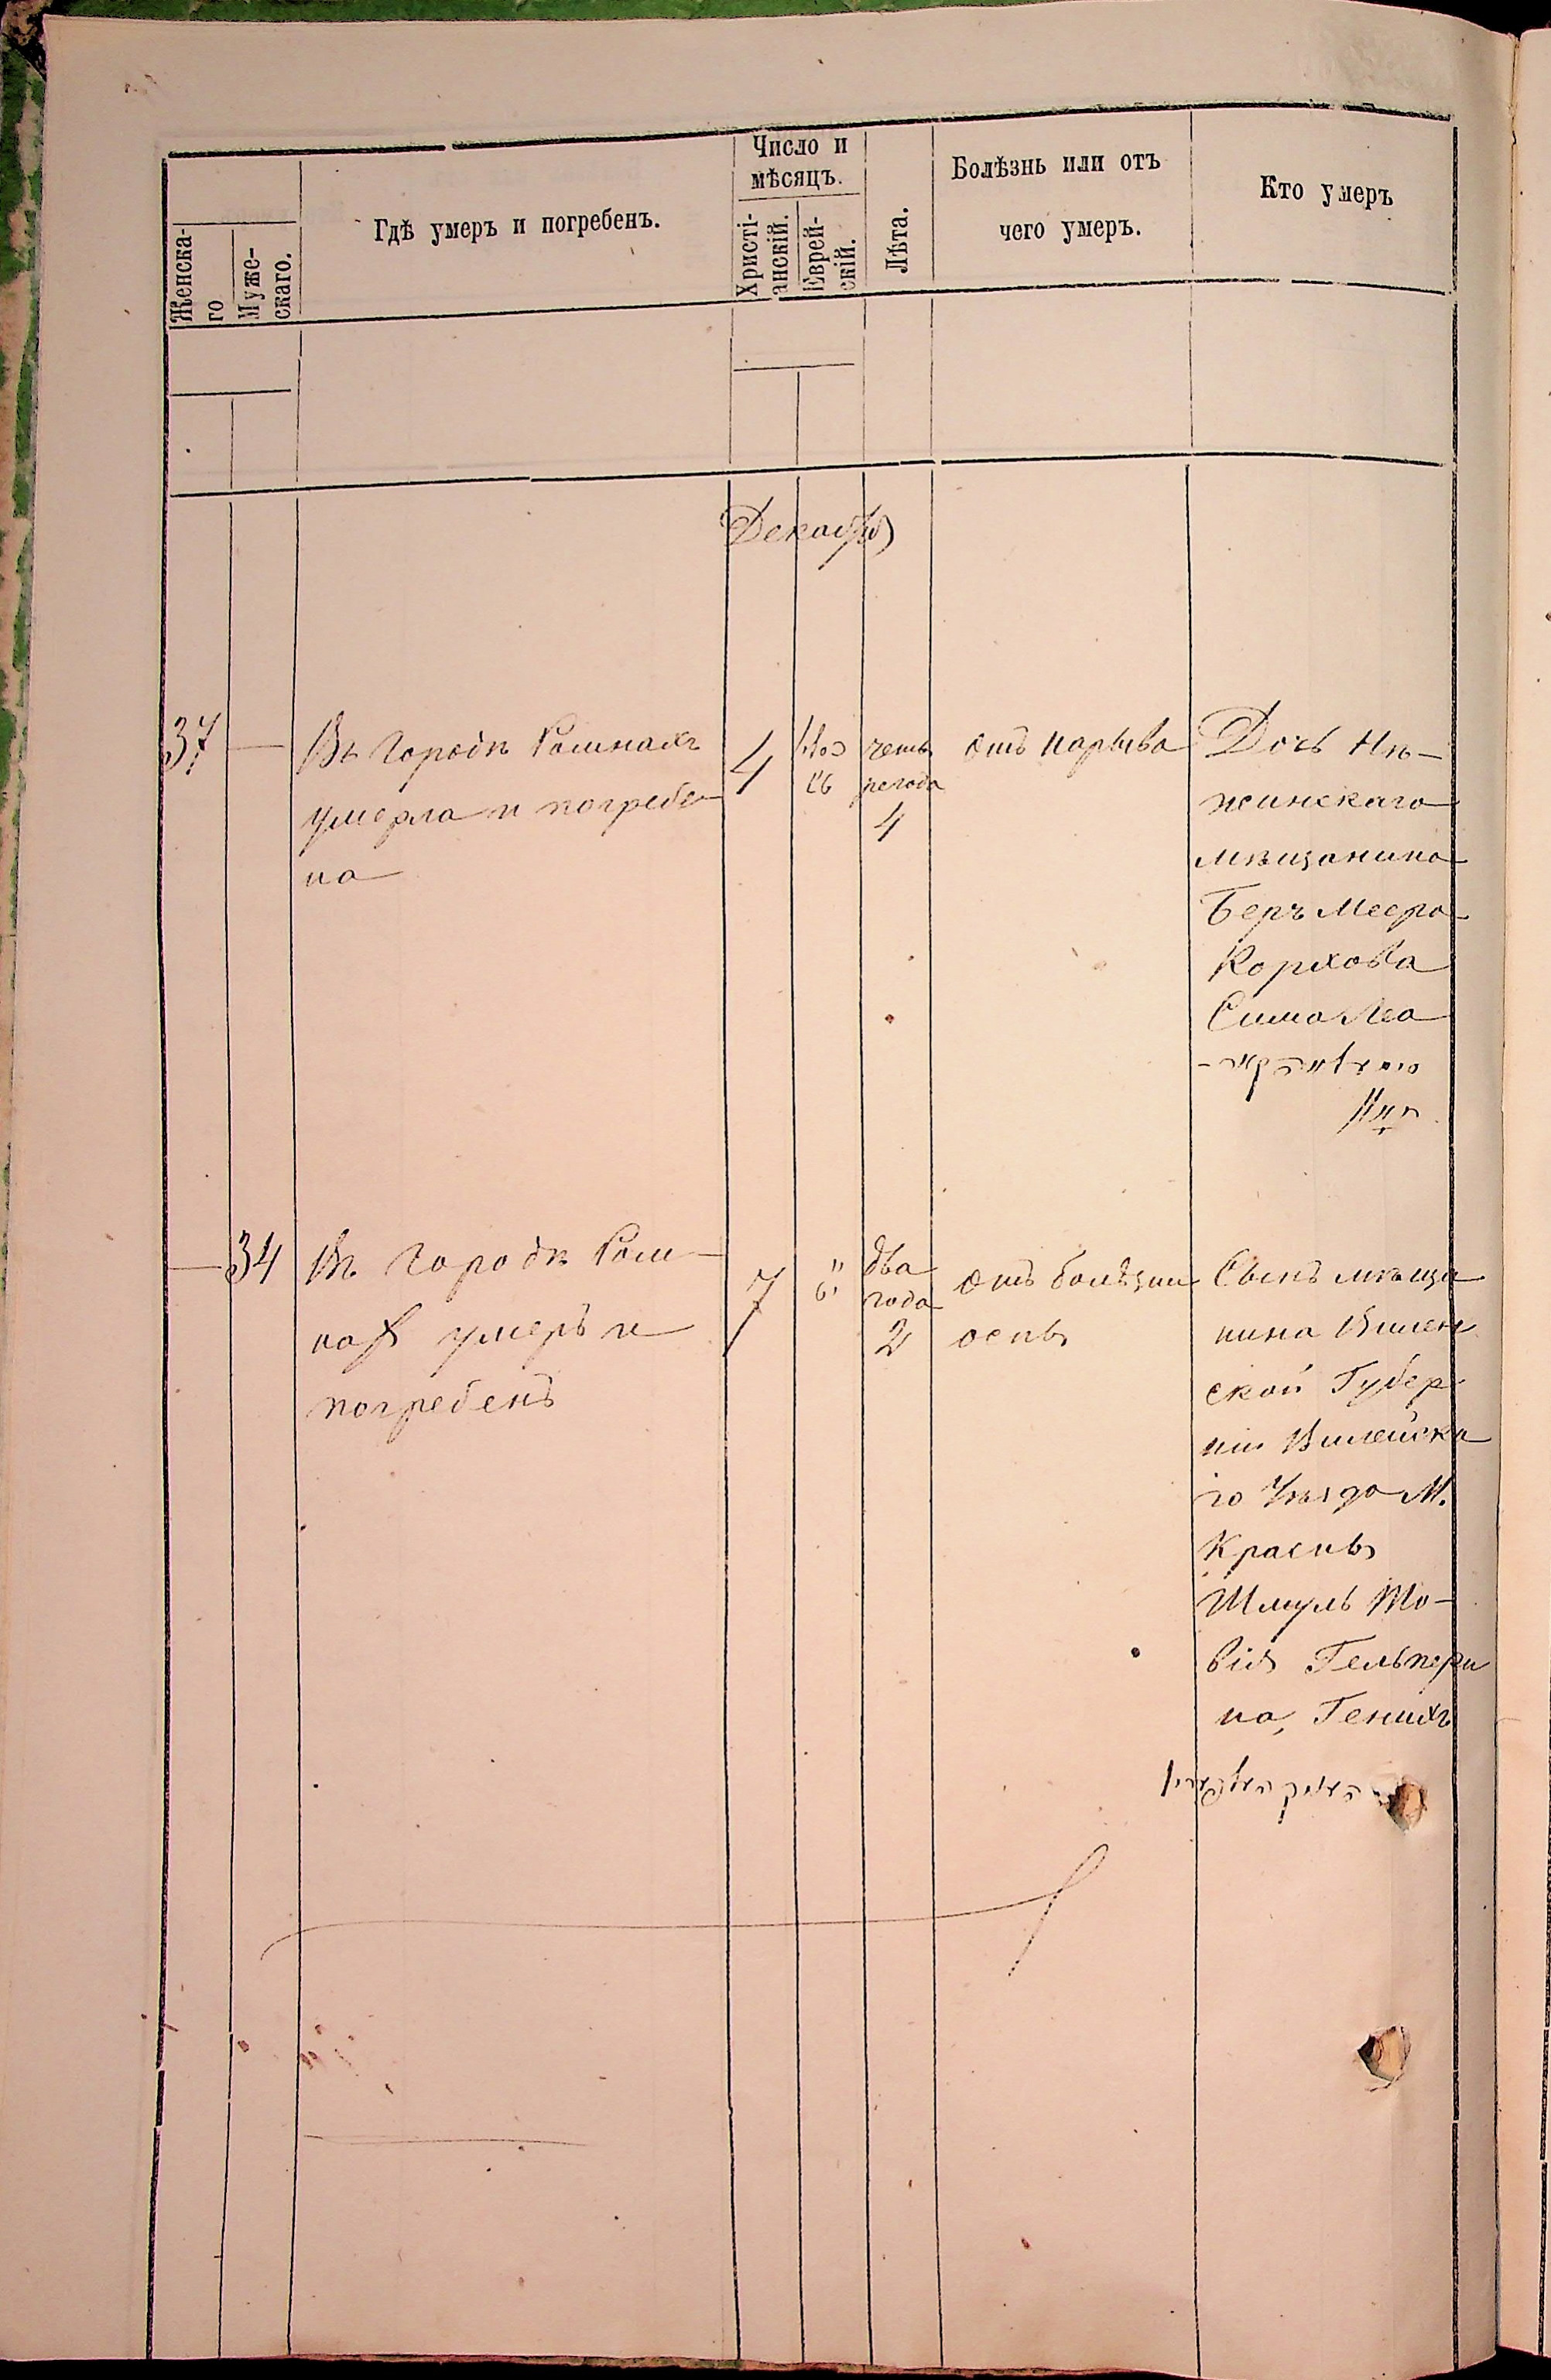 Число и
мѣсяцъ.
Женска-
го
Муже-
скаго.
Гдѣ умеръ и погребенъ.
Христі-
анскій.
Еврей-
скій.
Лѣта.
Болѣзнь или отъ
чего умеръ.
Кто умеръ
Декабрь
37 —
Въ Городѣ Ромнахъ
умерла и погребе-
на
4
כסלו
четы
ре года
4
отъ нарыва
Дочь Нѣ-
жинскаго
мѣщанина
Беръ Меера
Корхова
Сима Леа
— 34
Въ Городѣ Ром-
нахъ умеръ и
погребенъ
7
два
года
2
отъ болѣзни
оспы
Сынъ мѣща
нина Вилен
ской Губер
ніи Вилейска
го Уѣзда М.
Красны
Шмуль То-
вія Гельпери
на, Генихъ
העניך העלפערין